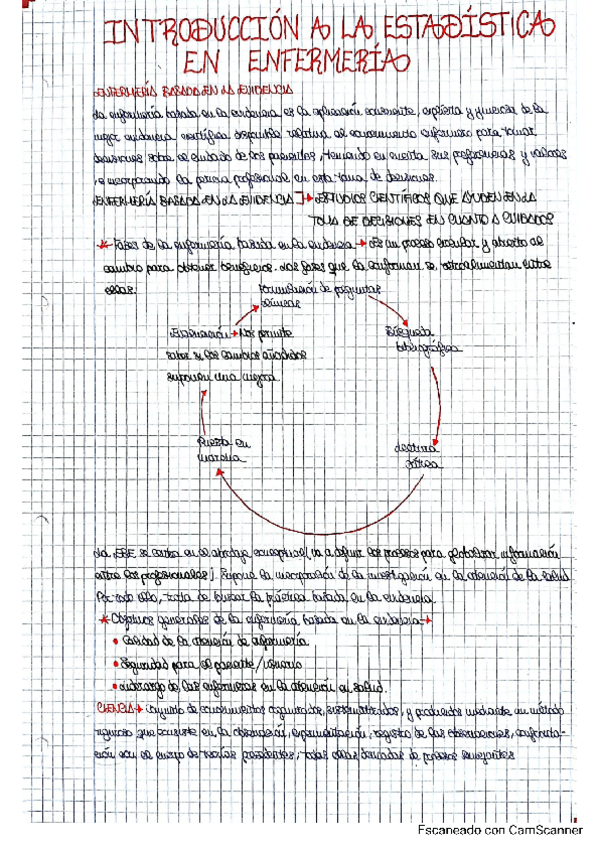 INTRODUCCIÓN A LA ESTADÍSTICA
EN ENFERMERÍA
ENFERMERÍA BASADA EN LA EVIDENCIA
La enfermería basada en la evidencia es la aplicación consciente, explícita y juiciosa de la
mejor evidencia científica disponible relativa al conocimiento enfermero para tomar
decisiones sobre el cuidado de los pacientes, teniendo en cuenta sus preferencias y valores
, e incorporando la pericia profesional en esta toma de decisiones.
ENFERMERÍA BASADA EN LA EVIDENCIA → ESTUDIOS CIENTÍFICOS QUE AYUDEN EN LA
TOMA DE DECISIONES EN CUANTO A CUIDADOS
* Fases de la enfermería basada en la evidencia → Es un proceso circular y abierto al
cambio para obtener beneficios. Las fases que la conforman se retroalimentan entre
ellas.
Formulación de preguntas
clínicas
Búsqueda
bibliográfica
Lectura
crítica
Puesta en
marcha
Evaluación → Nos permite
saber si los cambios añadidos
suponen una mejora
La EBE se centra en el abordaje conceptual (va a definir los procesos para globalizar información
entre los profesionales). Propone la incorporación de la investigación en la atención de la salud.
Por todo ello, trata de buscar la práctica basada en la evidencia.
* Objetivos generales de la enfermería basada en la evidencia →
• Calidad de la atención de enfermería
• Seguridad para el paciente/usuario
• Liderazgo de las enfermeras en la atención en salud.
CIENCIA → Conjunto de conocimientos organizados, sistematizados, y producidos mediante un método
riguroso que consiste en la observación, experimentación, registro de las observaciones, confronta-
ción con el cuerpo de teorías precedentes, todas ellas derivadas de procesos semejantes
Escaneado con CamScanner